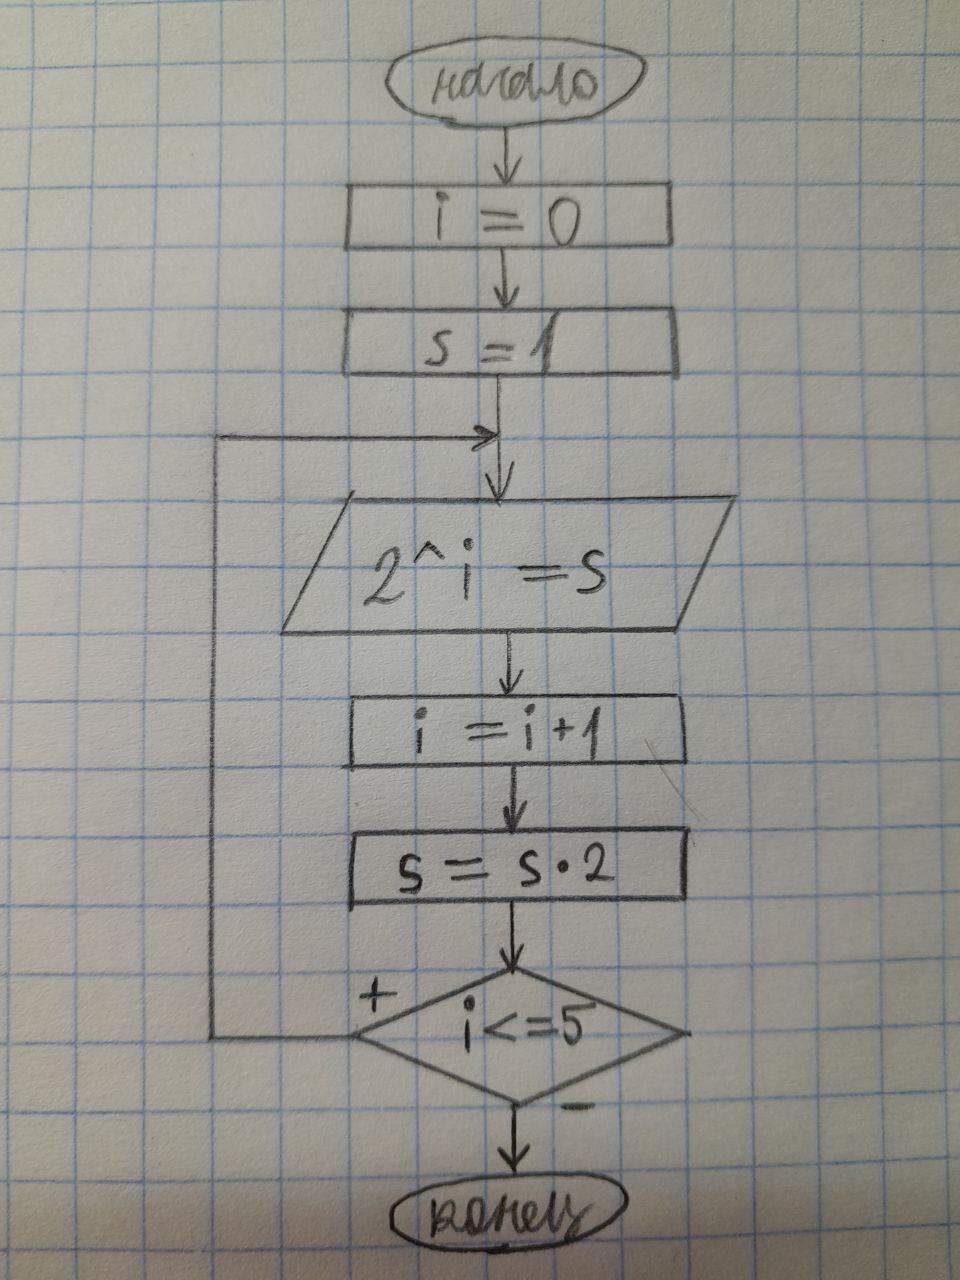 начало
i = 0
s = 1
2^i = s
i = i+1
s = s·2
+
i<=5
-
конец